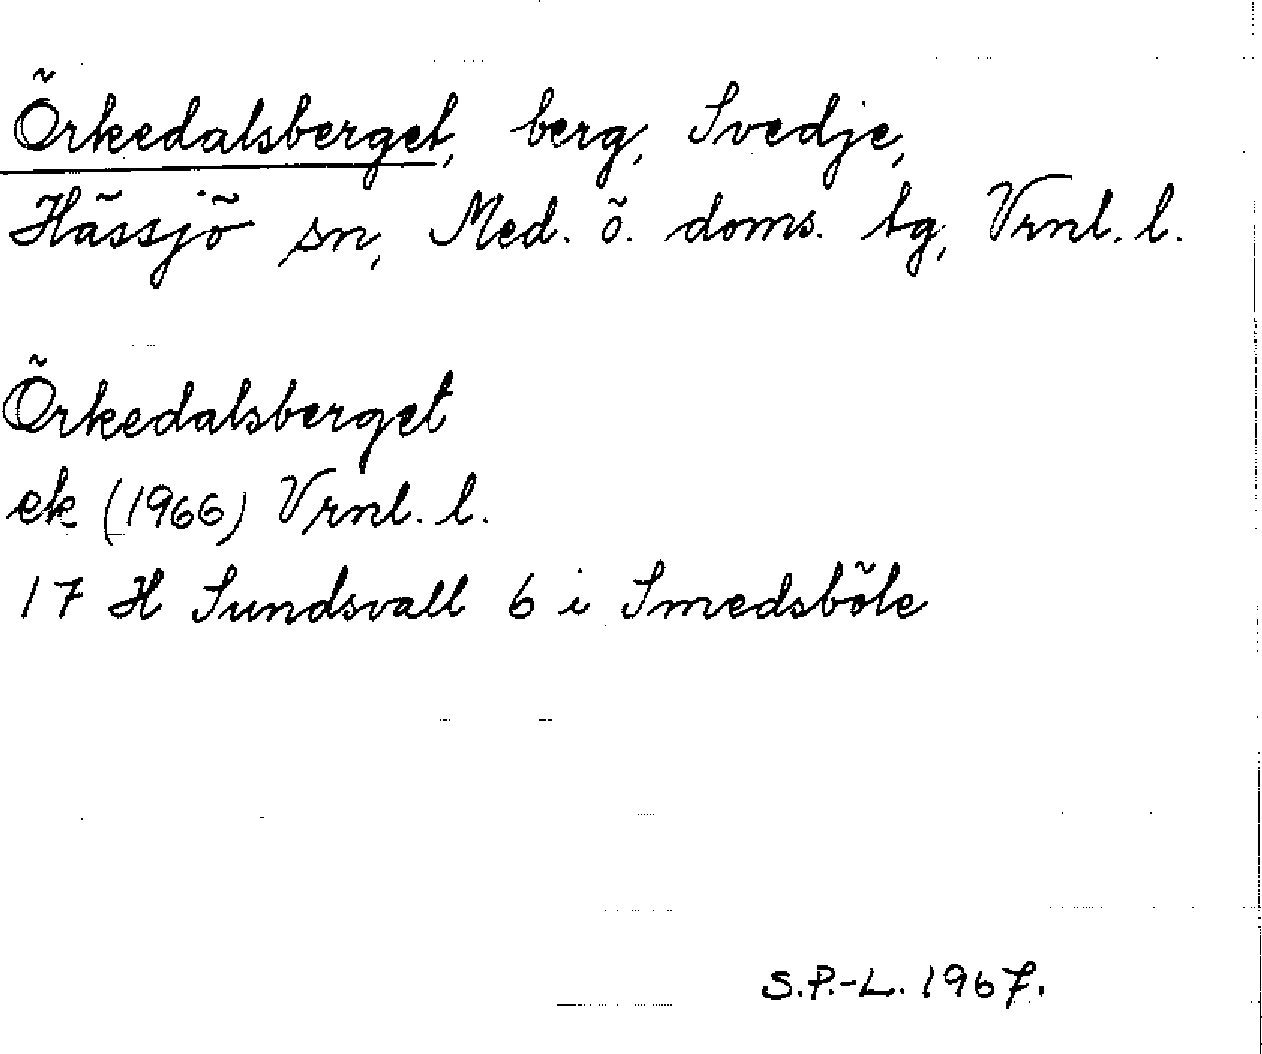 Örkedalsberget, berg, Svedje,
Hässjö sn, Med. ö. doms. tg, Vrnl. l.
Örkedalsberget
ek (1966) Vrnl. l.
17 H Sundsvall 6 i Smedsböle
S.P.-L. 1967.